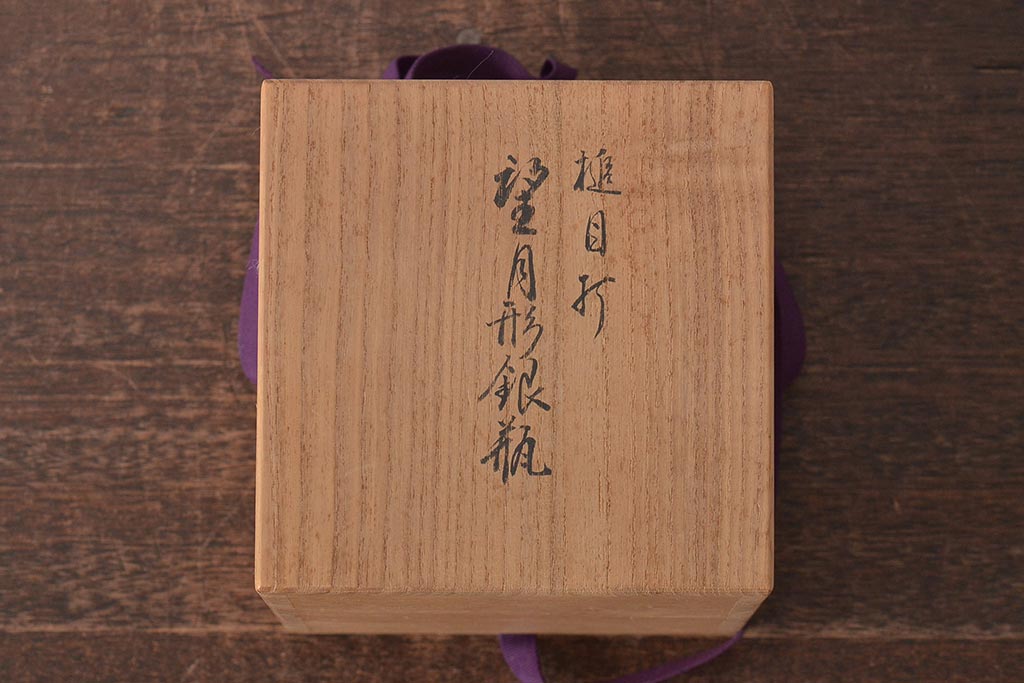 槌目打
望月形銀瓶